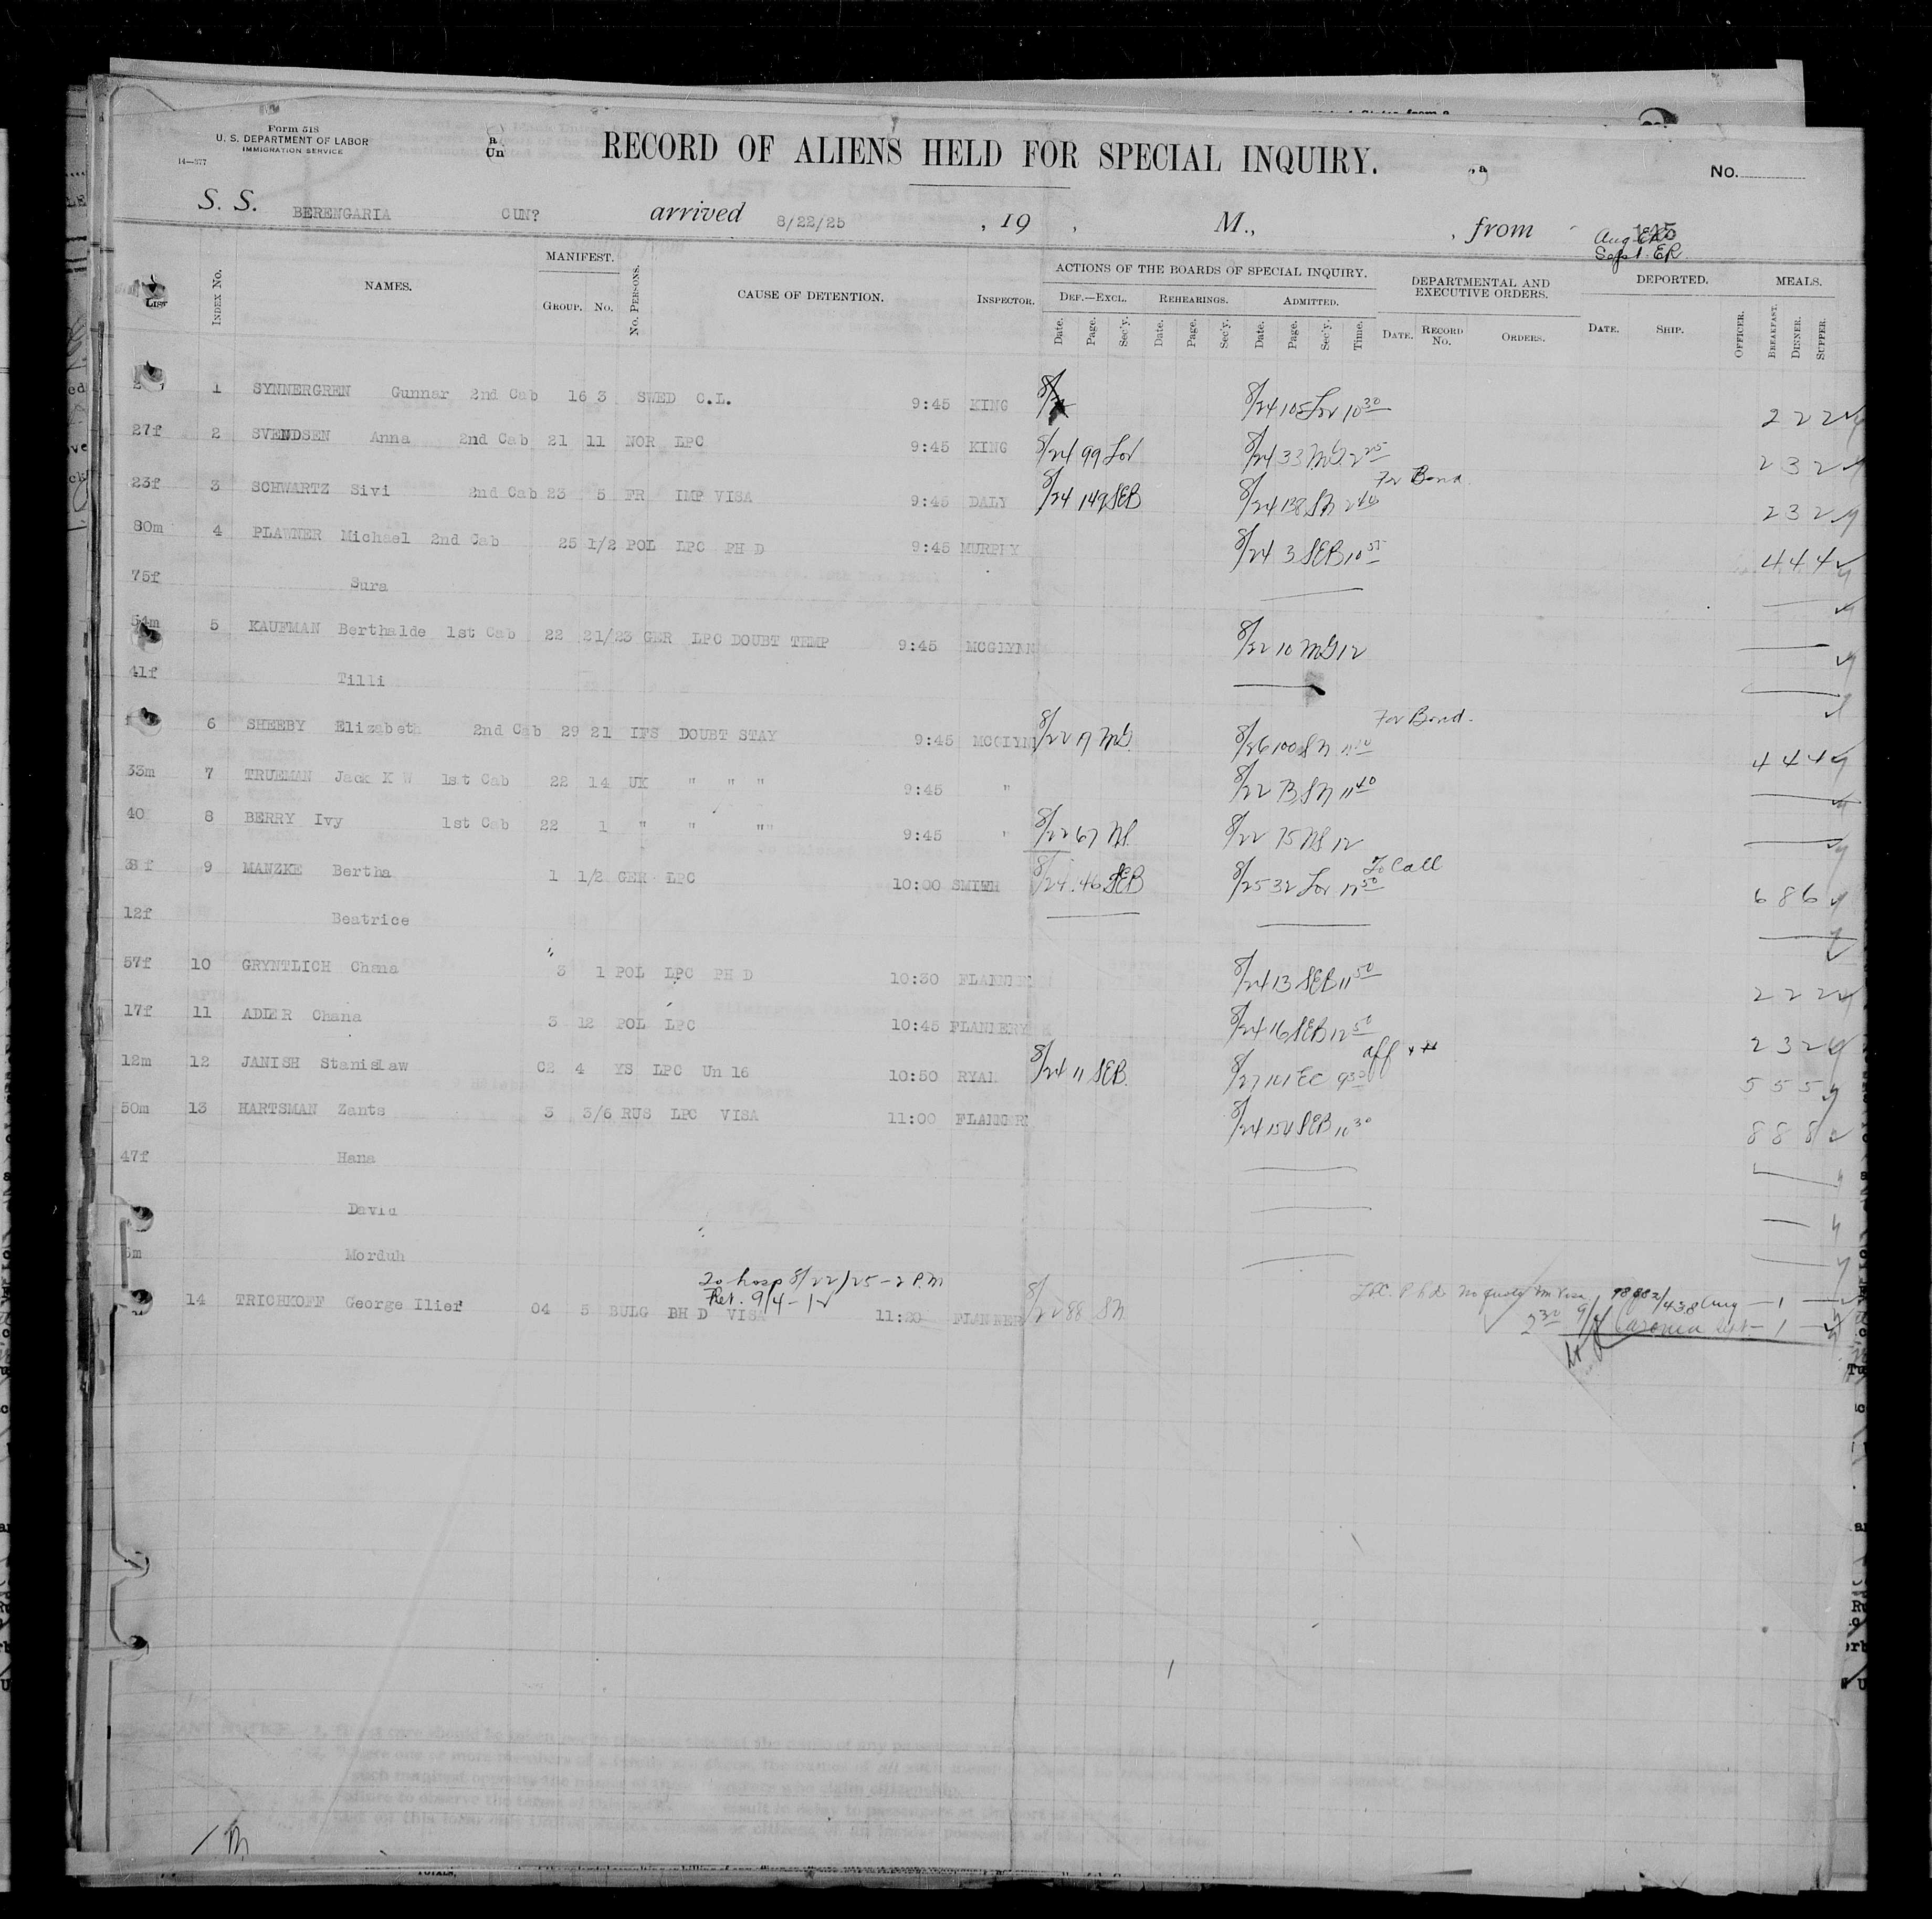 Form 518
U. S. DEPARTMENT OF LABOR
IMMIGRATION SERVICE
14—377
RECORD OF ALIENS HELD FOR SPECIAL INQUIRY.
No.
S. S. BERENGARIA CUN? arrived 8/22/25 , 19 , M., , from
Aug
Sept. ER
LIST
INDEX No.
NAMES.
MANIFEST.
GROUP. No.
No. PERSONS.
CAUSE OF DETENTION.
INSPECTOR.
ACTIONS OF THE BOARDS OF SPECIAL INQUIRY.
DEF.—EXCL. REHEARINGS. ADMITTED.
Date. Page. Sec'y. Date. Page. Sec'y. Date. Page. Sec'y. Time.
DEPARTMENTAL AND EXECUTIVE ORDERS.
DATE. RECORD No. ORDERS.
DEPORTED.
DATE. SHIP. OFFICER.
MEALS.
BREAKFAST. DINNER. SUPPER.
1 SYNNERGREN Gunnar 2nd Cab 16 3 SWED C.L. 9:45 KING 8/24 105 Lor 10 30 2 2 2
27f 2 SVENDSEN Anna 2nd Cab 21 11 NOR LPC 9:45 KING 8/24 99 Lor 8/24 33 McG 2 25 2 3 2
23f 3 SCHWARTZ Sivi 2nd Cab 23 5 FR IMP VISA 9:45 DALY 8/24 149 SEB 8/24 138 SN 2 40 For Bond 2 3 2
80m 4 PLAWNER Michael 2nd Cab 25 1/2 POL LPC PH D 9:45 MURPHY 8/24 3 SEB 10 55 4 4 4
75f Sura
54m 5 KAUFMAN Berthalde 1st Cab 22 21/23 GER LPC DOUBT TEMP 9:45 MCGLYNN 8/22 10 McG 12
41f Tilli
6 SHEEBY Elizabeth 2nd Cab 29 21 IFS DOUBT STAY 9:45 MCGLYNN 8/22 19 McG 8/26 100 SN For Bond. 4 4 4
33m 7 TRUEMAN Jack K W 1st Cab 22 14 UK " " " 9:45 " 8/22 73 SN 11 40
40 8 BERRY Ivy 1st Cab 22 1 " " "" 9:45 " 8/22 67 NS 8/22 75 NS 12
38f 9 MANZKE Bertha 1 1/2 GER LPC 10:00 SMITH 8/24 46 SEB 8/25 32 Lor 12 50 To Call 6 8 6
12f Beatrice
57f 10 GRYNTLICH Chana 3 1 POL LPC PH D 10:30 8/24 13 SEB 11 50 2 2 2
17f 11 ADLER Chana 3 12 POL LPC 10:45 FLANNERY 8/24 16 SEB 12 50 2 3 2
12m 12 JANISH Stanislaw C2 4 YS LPC Un 16 10:50 RYAN 8/24 11 SEB 8/27 101 EC 9 30 aff 5 5 5
50m 13 HARTSMAN Zants 3 3/6 RUS LPC VISA 11:00 8/24 154 SEB 10 30 8 8 8
47f Hana
David
Morduh
To hosp 8/22/25 - 2 P.M
Ret. 9/4 - 12
14 TRICHKOFF George Ilief 04 5 BULG BH D VISA 11:20 8/22 88 SN 98882/438 Aug — 1 —
2 30 Caronia Sept — 1 —